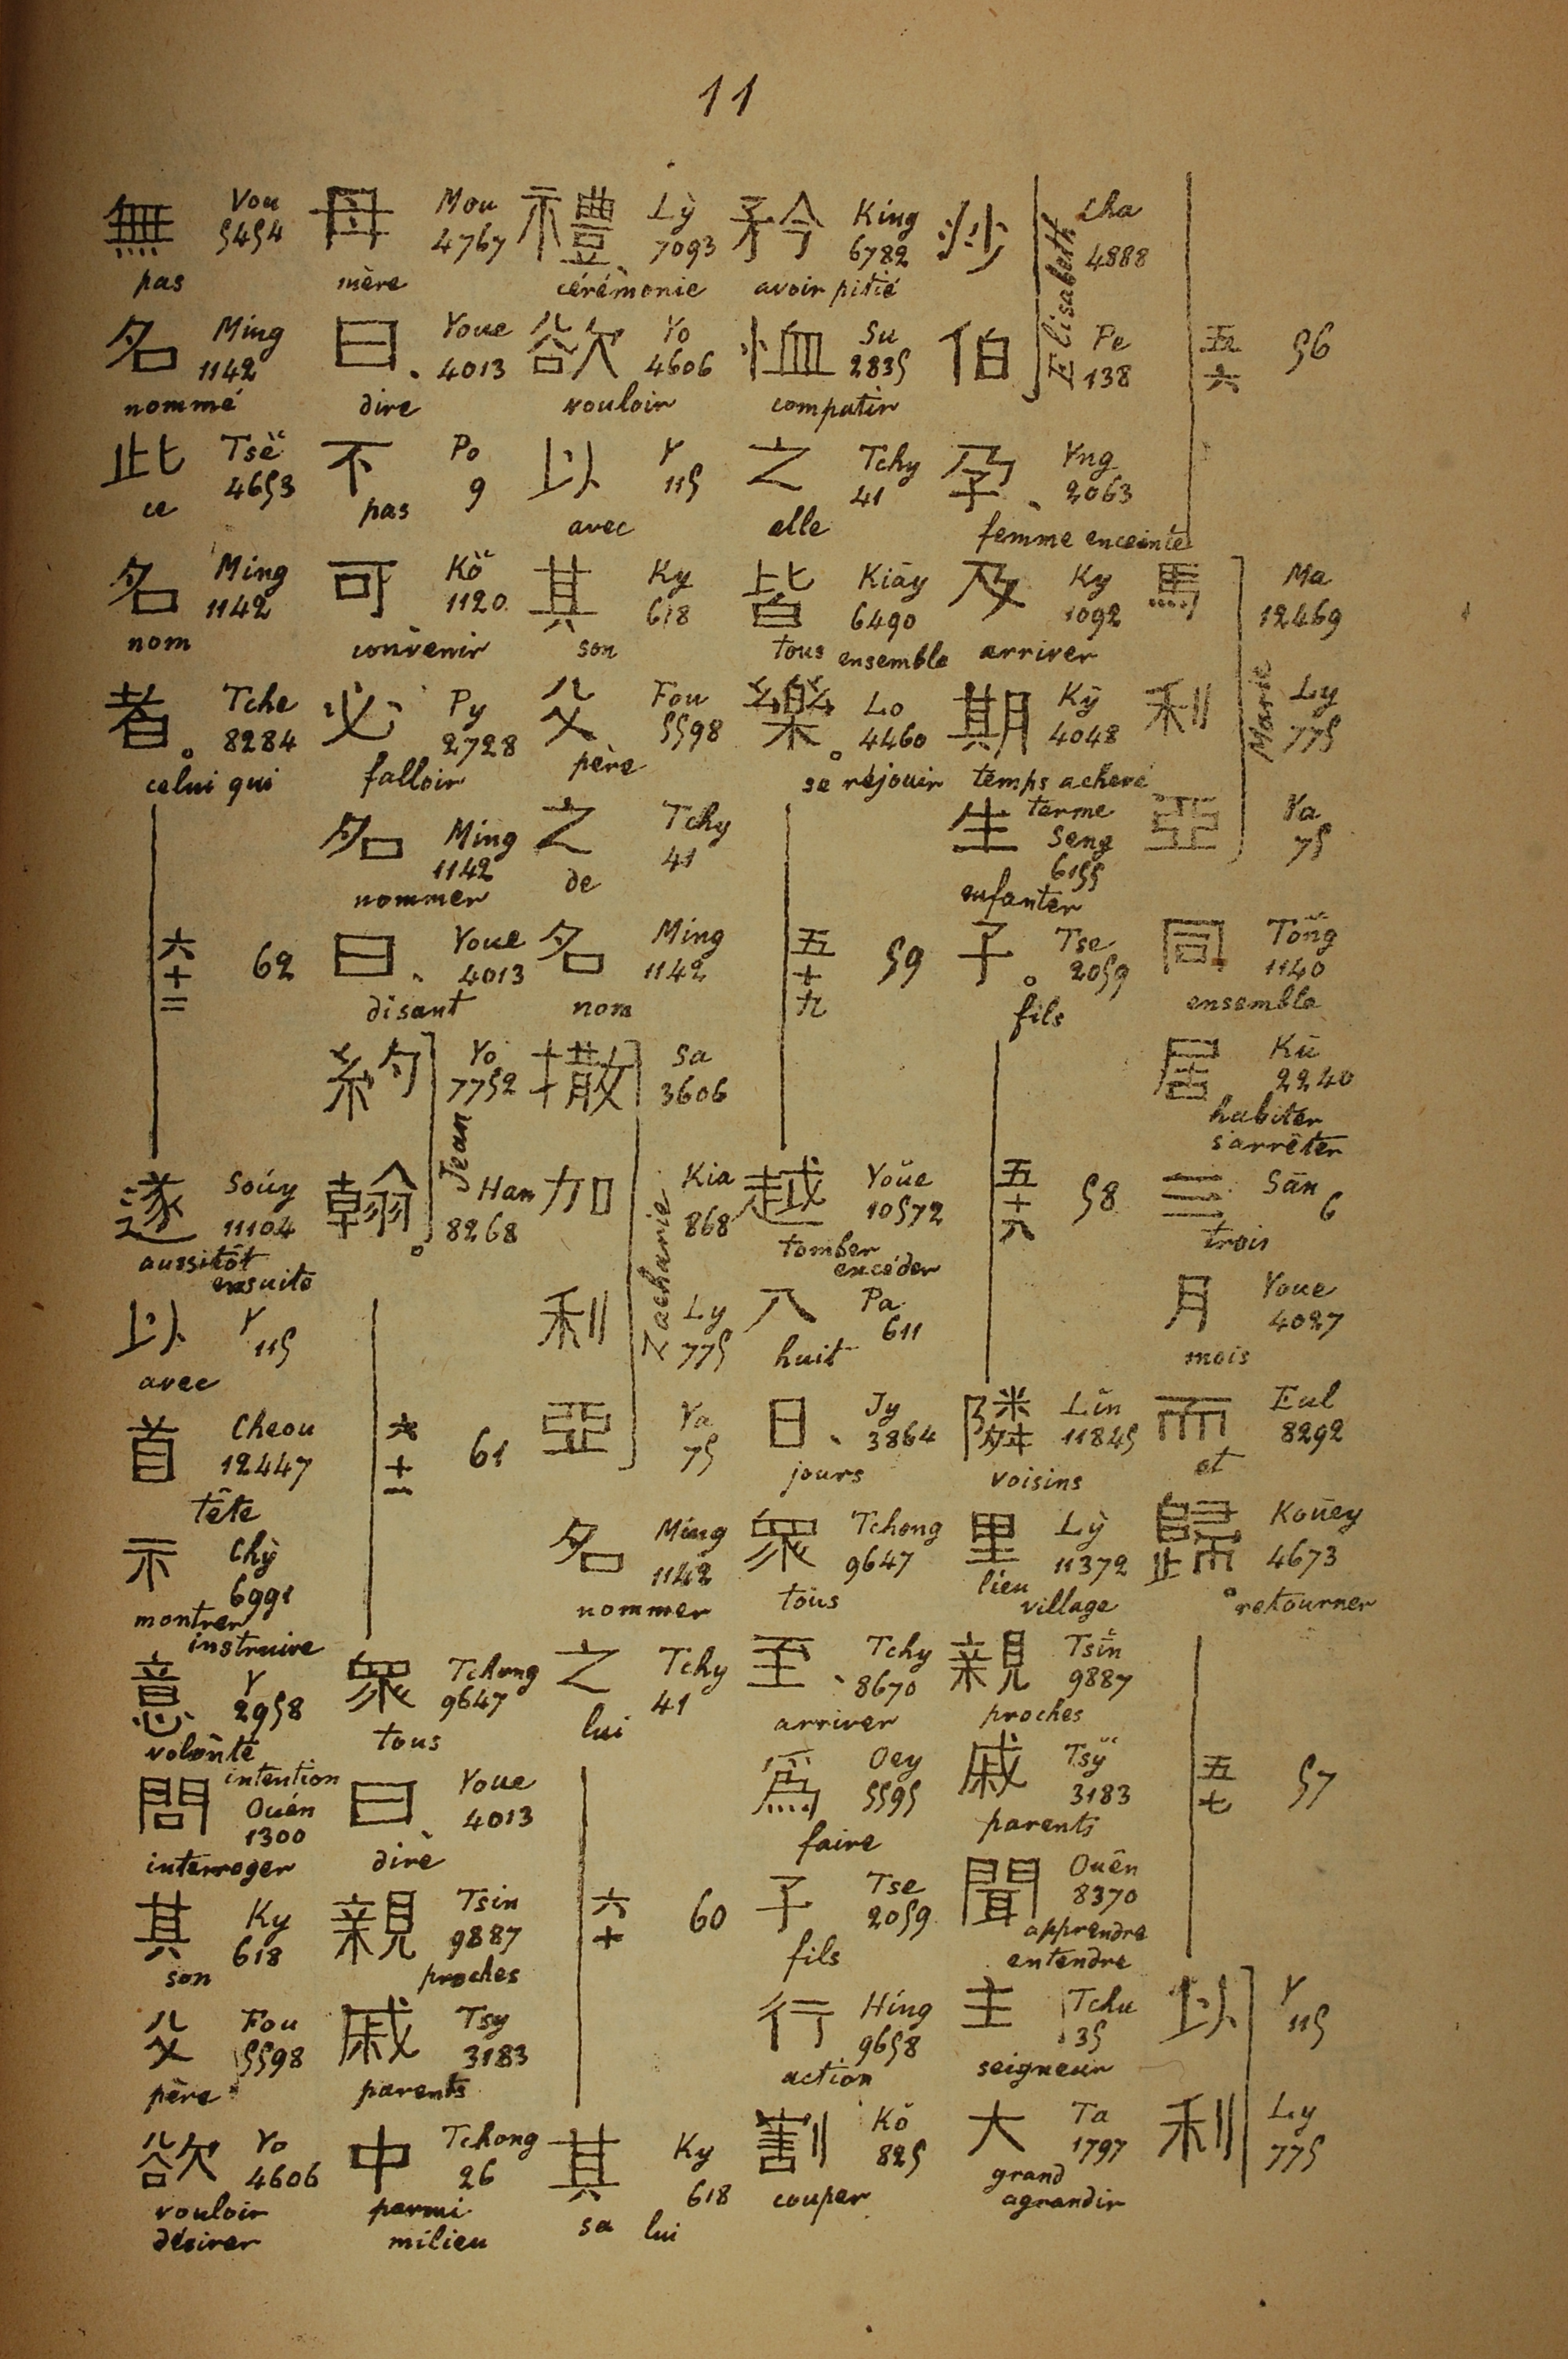 11
五六 56
馬 Ma 12469
利 Ly 775
亞 Ya 75
Marie
同 Tông 1140
ensemble
居 Kū 2240
habiter
s'arrêter
三 Sān 6
trois
月 Youe 4027
mois
而 Eul 8292
et
歸。 Koūey 4673
retourner
五七 57
以 Y 115
利 Ly 775
沙 Cha 4888
伯 Pe 138
Elisabeth
孕、 Yng 2063
femme enceinte
及 Ky 1092
arriver
期 Kÿ 4048
temps achevé
terme
生 Seng 6155
enfanter
子。 Tse 2059
fils
五十八 58
隣 Lîn 11845
voisins
里 Lỳ 11372
lieu
village
親 Tsīn 9887
proches
戚 Tsÿ 3183
parents
聞 Ouên 8370
apprendre
entendre
主 Tchu 35
seigneur
大 Ta 1797
grand
agrandir
矜 King 6782
avoir pitié
恤 Su 2835
compatir
之 Tchy 41
elle
皆 Kiāy 6490
tous ensemble
樂。 Lo 4460
se réjouir
五十九 59
越 Yŏue 10572
tomber
excéder
八 Pa 611
huit
日、 Jy 3864
jours
衆 Tchong 9647
tous
至、 Tchy 8670
arriver
爲 Oey 5595
faire
子 Tse 2059
fils
行 Hing 9658
action
割 Kŏ 825
couper
禮、 Lỳ 7093
cérémonie
欲 Yo 4606
vouloir
以 Y 115
avec
其 Ky 618
son
父 Fou 5598
père
之 Tchy 41
de
名 Ming 1142
nom
撒 Sa 3606
加 Kia 868
利 Ly 775
亞 Ya 75
Zacharie
名 Ming 1142
nommer
之 Tchy 41
lui
六十 60
其 Ky 618
sa lui
母 Mou 4767
mère
曰、 Youe 4013
dire
不 Po 9
pas
可 Kŏ 1120
convenir
必 Py 2728
falloir
名 Ming 1142
nommer
曰、 Youe 4013
disant
約 Yo 7752
翰。 Han 8268
Jean
六十一 61
衆 Tchong 9647
tous
曰、 Youe 4013
dire
親 Tsin 9887
proches
戚 Tsy 3183
parents
中 Tchong 26
parmi
milieu
無 Vou 5454
pas
名 Ming 1142
nommé
此 Tsĕ 4653
ce
名 Ming 1142
nom
者。 Tche 8284
celui qui
六十二 62
遂 Soúy 11104
aussitôt
ensuite
以 Y 115
avec
首 Cheou 12447
tête
示 Chỳ 6991
montrer
instruire
意 Y 2958
volonté
intention
問 Ouén 1300
interroger
其 Ky 618
son
父 Fou 5598
père
欲 Yo 4606
vouloir
désirer